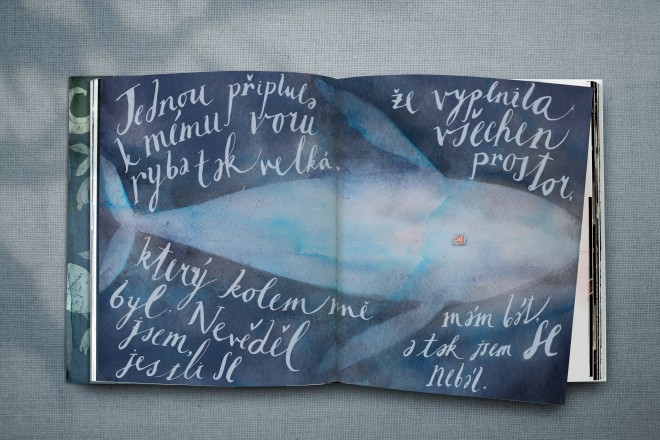 Jednou připlula
k mému voru
ryba tak velká,
že vyplnila
všechen
prostor,
který kolem mě
byl. Nevěděl
jsem,
jestli se
mám bát,
a tak jsem se
nebál.